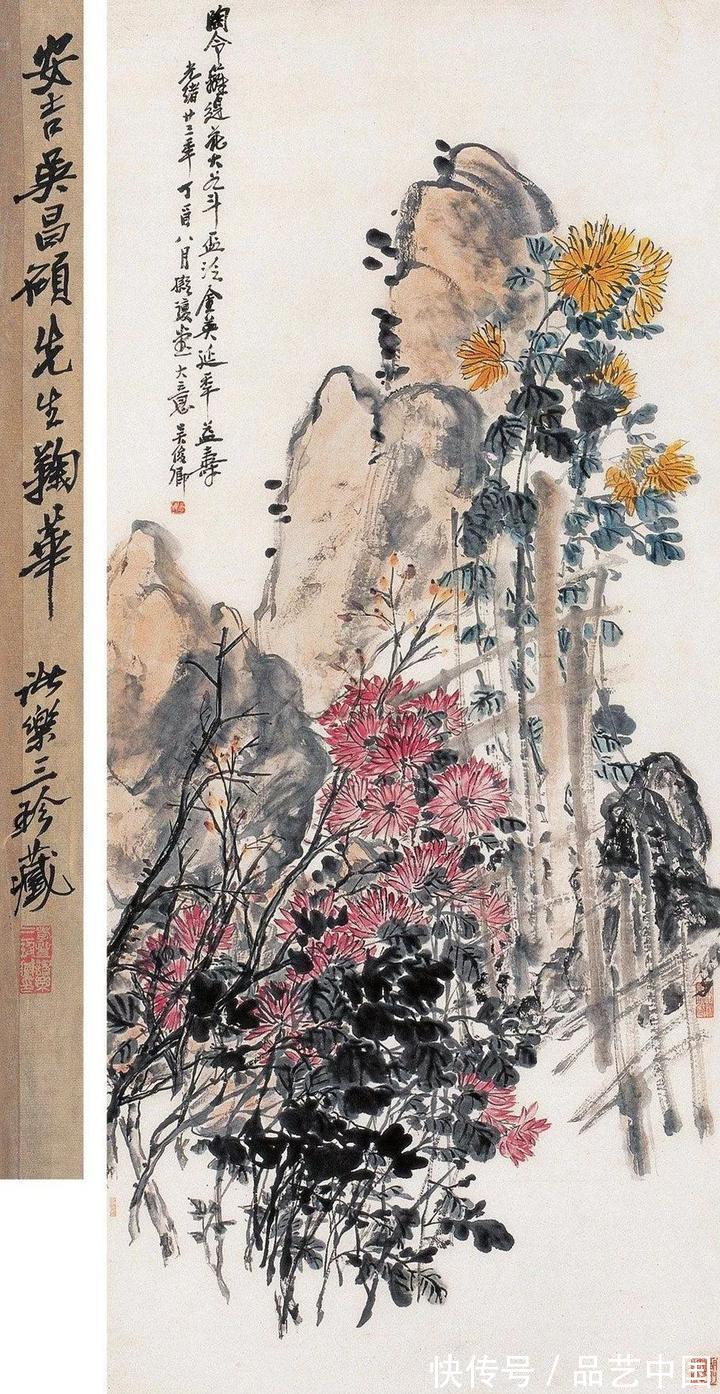 安吉吳昌碩先生鞠華 諸樂三珍藏
陶令籬邊花大斗盃泛金英延年益壽
光緒廿三年丁酉八月擬復堂大意 吳俊卿
快传号 / 品艺中国